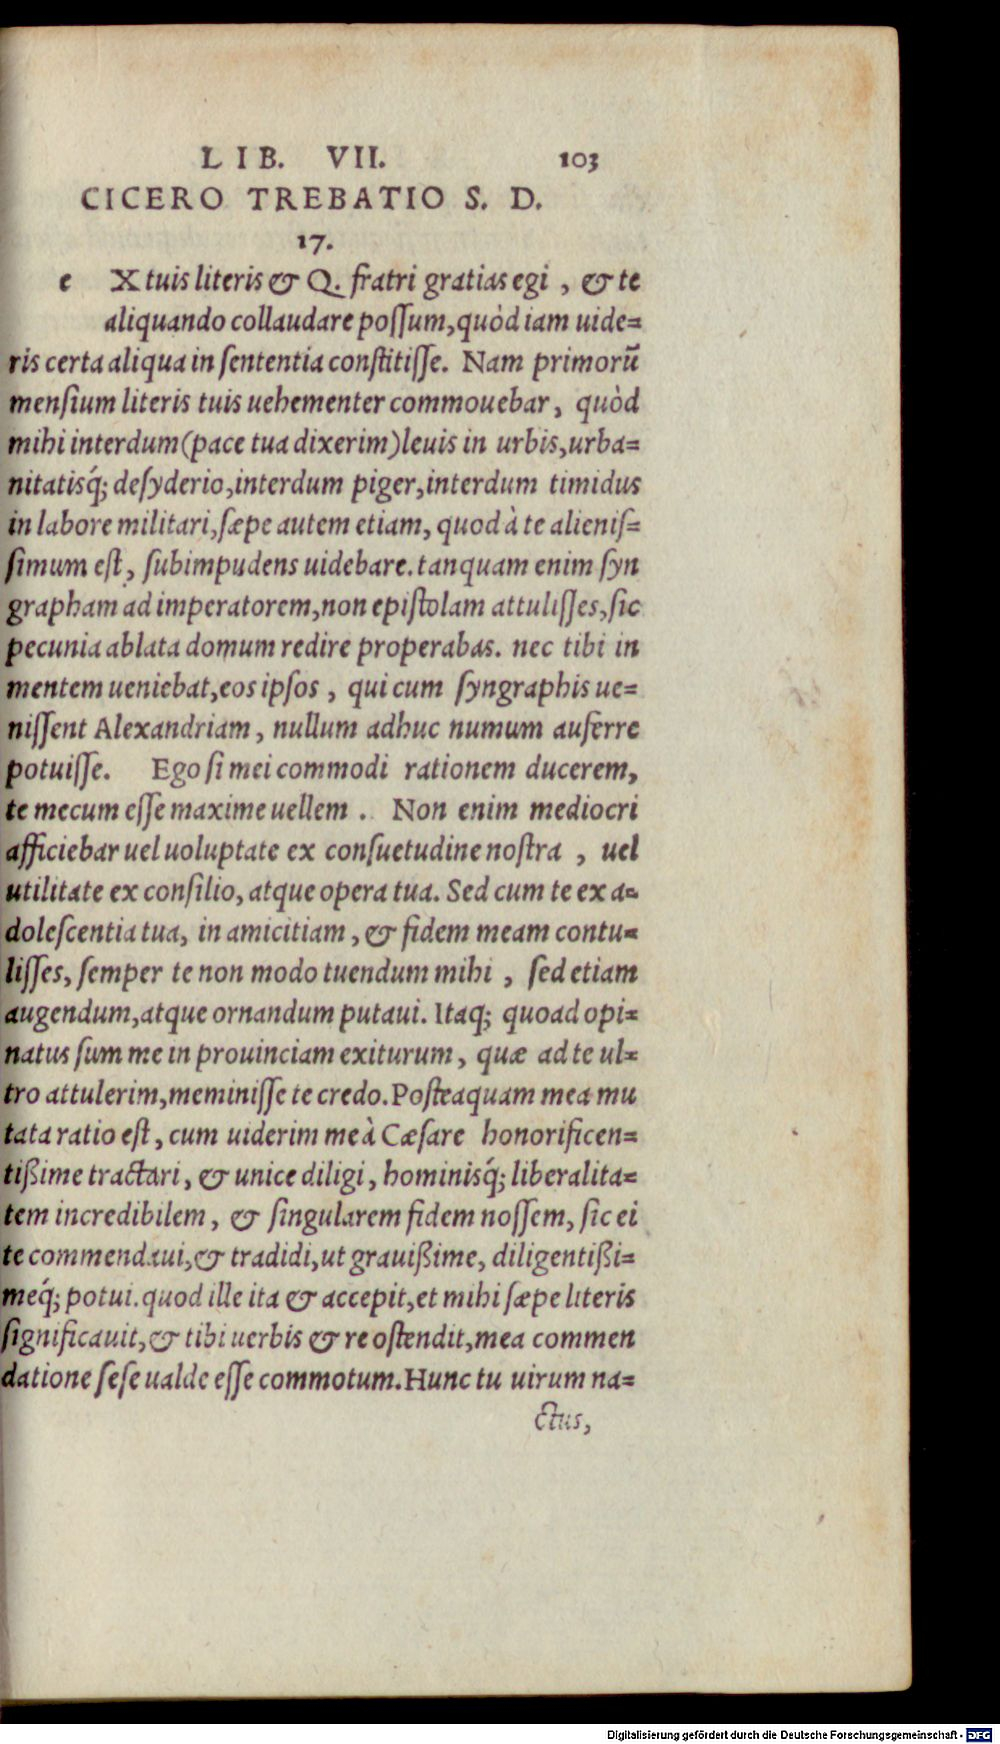 LIB. VII. 103
CICERO TREBATIO S. D.
17.
e X tuis literis & Q. fratri gratias egi, & te
aliquando collaudare poſſum, quòd iam uide=
ris certa aliqua in ſententia conſtitiſſe. Nam primorũ
menſium literis tuis uehementer commouebar, quòd
mihi interdum (pace tua dixerim) leuis in urbis, urba=
nitatisq́; deſyderio, interdum piger, interdum timidus
in labore militari, ſæpe autem etiam, quod à te alieniſ=
ſimum eſt, ſubimpudens uidebare. tanquam enim ſyn
grapham ad imperatorem, non epiſtolam attuliſſes, ſic
pecunia ablata domum redire properabas. nec tibi in
mentem ueniebat, eos ipſos, qui cum ſyngraphis ue=
niſſent Alexandriam, nullum adhuc numum auferre
potuiſſe. Ego ſi mei commodi rationem ducerem,
te mecum eſſe maxime uellem. Non enim mediocri
afficiebar uel uoluptate ex conſuetudine noſtra, uel
utilitate ex conſilio, atque opera tua. Sed cum te ex a=
doleſcentia tua, in amicitiam, & fidem meam contu=
liſſes, ſemper te non modo tuendum mihi, ſed etiam
augendum, atque ornandum putaui. Itaq; quoad opi=
natus ſum me in prouinciam exiturum, quæ ad te ul=
tro attulerim, meminiſſe te credo. Poſteaquam mea mu
tata ratio eſt, cum uiderim me à Cæſare honorificen=
tißime tractari, & unice diligi, hominisq́; liberalita=
tem incredibilem, & ſingularem fidem noſſem, ſic ei
te commendaui, & tradidi, ut grauißime, diligentißi=
meq́; potui. quod ille ita & accepit, et mihi ſæpe literis
ſignificauit, & tibi uerbis & re oſtendit, mea commen
datione ſeſe ualde eſſe commotum. Hunc tu uirum na=
ctus,
Digitalisierung gefördert durch die Deutsche Forschungsgemeinschaft - DFG